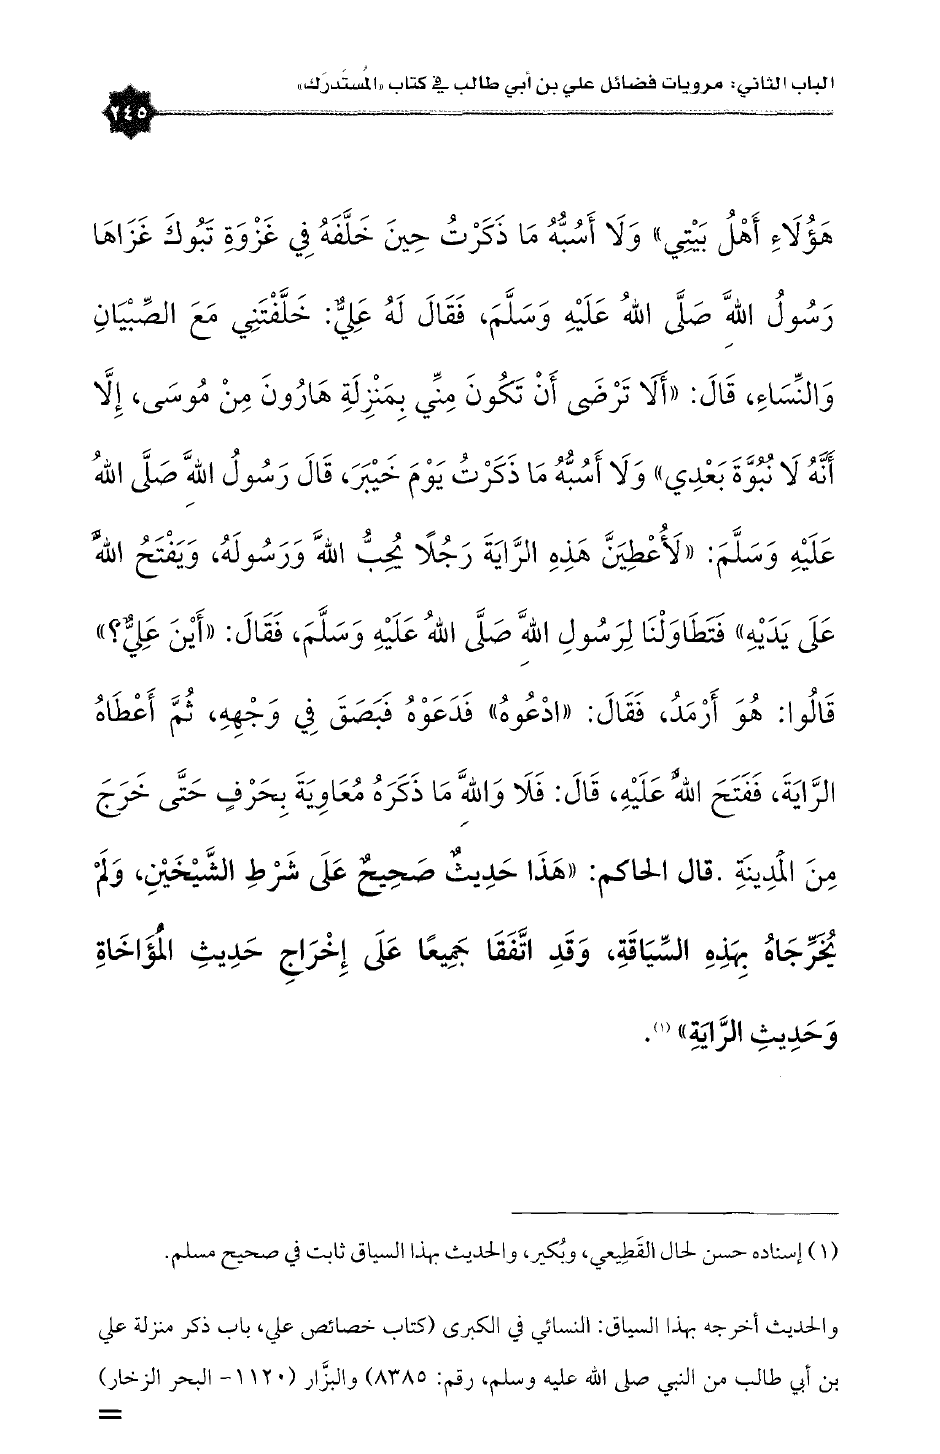 الباب الثاني: مرويات فضائل علي بن أبي طالب في كتاب «المُستَدرَك»
٢٤٥
هَؤُلَاءِ أَهْلُ بَيْتِي» وَلَا أَسُبُّهُ مَا ذَكَرْتُ حِينَ خَلَّفَهُ فِي غَزْوَةِ تَبُوكَ غَزَاهَا
رَسُولُ اللهِ صَلَّى اللهُ عَلَيْهِ وَسَلَّمَ، فَقَالَ لَهُ عَلِيٌّ: خَلَّفْتَنِي مَعَ الصِّبْيَانِ
وَالنِّسَاءِ، قَالَ: «أَلَا تَرْضَى أَنْ تَكُونَ مِنِّي بِمَنْزِلَةِ هَارُونَ مِنْ مُوسَى، إِلَّا
أَنَّهُ لَا نُبُوَّةَ بَعْدِي» وَلَا أَسُبُّهُ مَا ذَكَرْتُ يَوْمَ خَيْبَرَ، قَالَ رَسُولُ اللهِ صَلَّى اللهُ
عَلَيْهِ وَسَلَّمَ: «لَأُعْطِيَنَّ هَذِهِ الرَّايَةَ رَجُلًا يُحِبُّ اللهَ وَرَسُولَهُ، وَيَفْتَحُ اللهُ
عَلَى يَدَيْهِ» فَتَطَاوَلْنَا لِرَسُولِ اللهِ صَلَّى اللهُ عَلَيْهِ وَسَلَّمَ، فَقَالَ: «أَيْنَ عَلِيٌّ؟»
قَالُوا: هُوَ أَرْمَدُ، فَقَالَ: «ادْعُوهُ» فَدَعَوْهُ فَبَصَقَ فِي وَجْهِهِ، ثُمَّ أَعْطَاهُ
الرَّايَةَ، فَفَتَحَ اللهُ عَلَيْهِ، قَالَ: فَلَا وَاللهِ مَا ذَكَرَهُ مُعَاوِيَةَ بِحَرْفٍ حَتَّى خَرَجَ
مِنَ الْمَدِينَةِ .قال الحاكم: «هَذَا حَدِيثٌ صَحِيحٌ عَلَى شَرْطِ الشَّيْخَيْنِ، وَلَمْ
يُخَرِّجَاهُ بِهَذِهِ السِّيَاقَةِ، وَقَدِ اتَّفَقَا جَمِيعًا عَلَى إِخْرَاجِ حَدِيثِ الْمُؤَاخَاةِ
وَحَدِيثِ الرَّايَةِ» (١).
(١) إسناده حسن لحال القَطِيعي، وبُكير، والحديث بهذا السياق ثابت في صحيح مسلم.
والحديث أخرجه بهذا السياق: النسائي في الكبرى (كتاب خصائص علي، باب ذكر منزلة علي
بن أبي طالب من النبي صلى الله عليه وسلم، رقم: ٨٣٨٥) والبزَّار (١١٢٠- البحر الزخار)
=